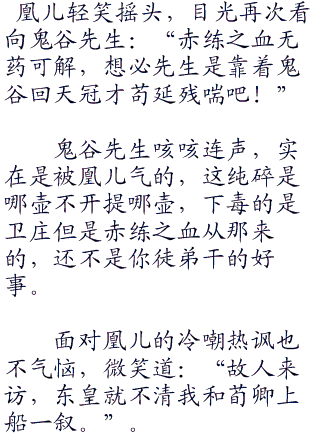 凰儿轻笑摇头，目光再次看
向鬼谷先生：“赤练之血无
药可解，想必先生是靠着鬼
谷回天冠才苟延残喘吧！”
鬼谷先生咳咳连声，实
在是被凰儿气的，这纯碎是
哪壶不开提哪壶，下毒的是
卫庄但是赤练之血从那来
的，还不是你徒弟干的好
事。
面对凰儿的冷嘲热讽也
不气恼，微笑道：“故人来
访，东皇就不清我和荀卿上
船一叙。”。